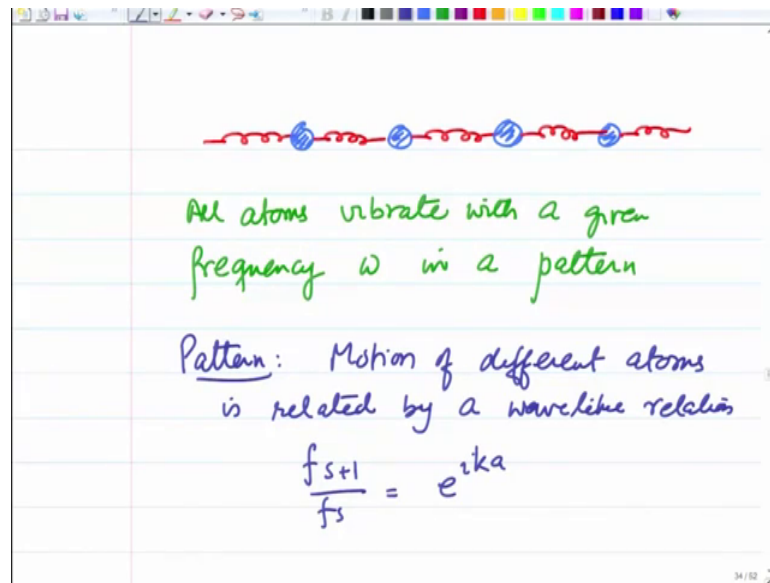 All atoms vibrate with a given
frequency ω in a pattern
Pattern: Motion of different atoms
is related by a wavelike relation
f_{s+1}/f_s = e^{ika}
34 / 52